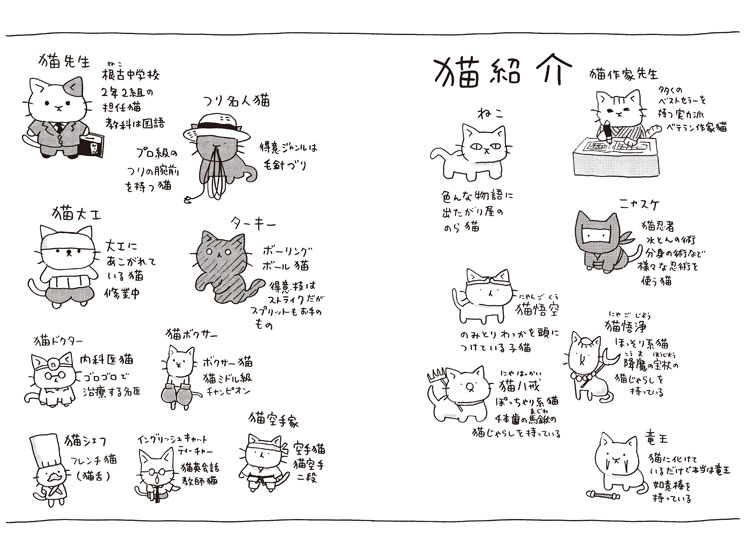 猫紹介
猫作家先生
多くの
ベストセラーを
持つ実力派
ベテラン作家猫
ねこ
色んな物語に
出たがり屋の
のら猫
ニャスケ
猫忍者
水とんの術
分身の術など
様々な忍術を
使う猫
にゃんごくう
猫悟空
のみとりわっかを頭に
つけている子猫
にゃごじょう
猫悟浄
ほっそり系猫
ごうまほうじょう
降魔の宝杖の
猫じゃらしを
持っている
にゃはっかい
猫八戒
ぽっちゃり系猫
まぐわ
4本歯の馬鍬の
猫じゃらしを持っている
竜王
猫に化けて
いるだけで本当は竜王
如意棒を
持っている
猫先生
ねこ
根古中学校
2年2組の
担任猫
教科は国語
つり名人猫
プロ級の
つりの腕前
を持つ猫
得意ジャンルは
毛針づり
猫大工
大工に
あこがれて
いる猫
修業中
ターキー
ボーリング
ボール猫
得意技は
ストライクだが
スプリットもお手の
もの
猫ドクター
内科医猫
ゴロゴロで
治療する名医
猫ボクサー
ボクサー猫
猫ミドル級
チャンピオン
猫シェフ
フレンチ猫
(猫舌)
イングリッシュキャット
ティーチャー
猫英会話
教師猫
猫空手家
空手猫
猫空手
二段